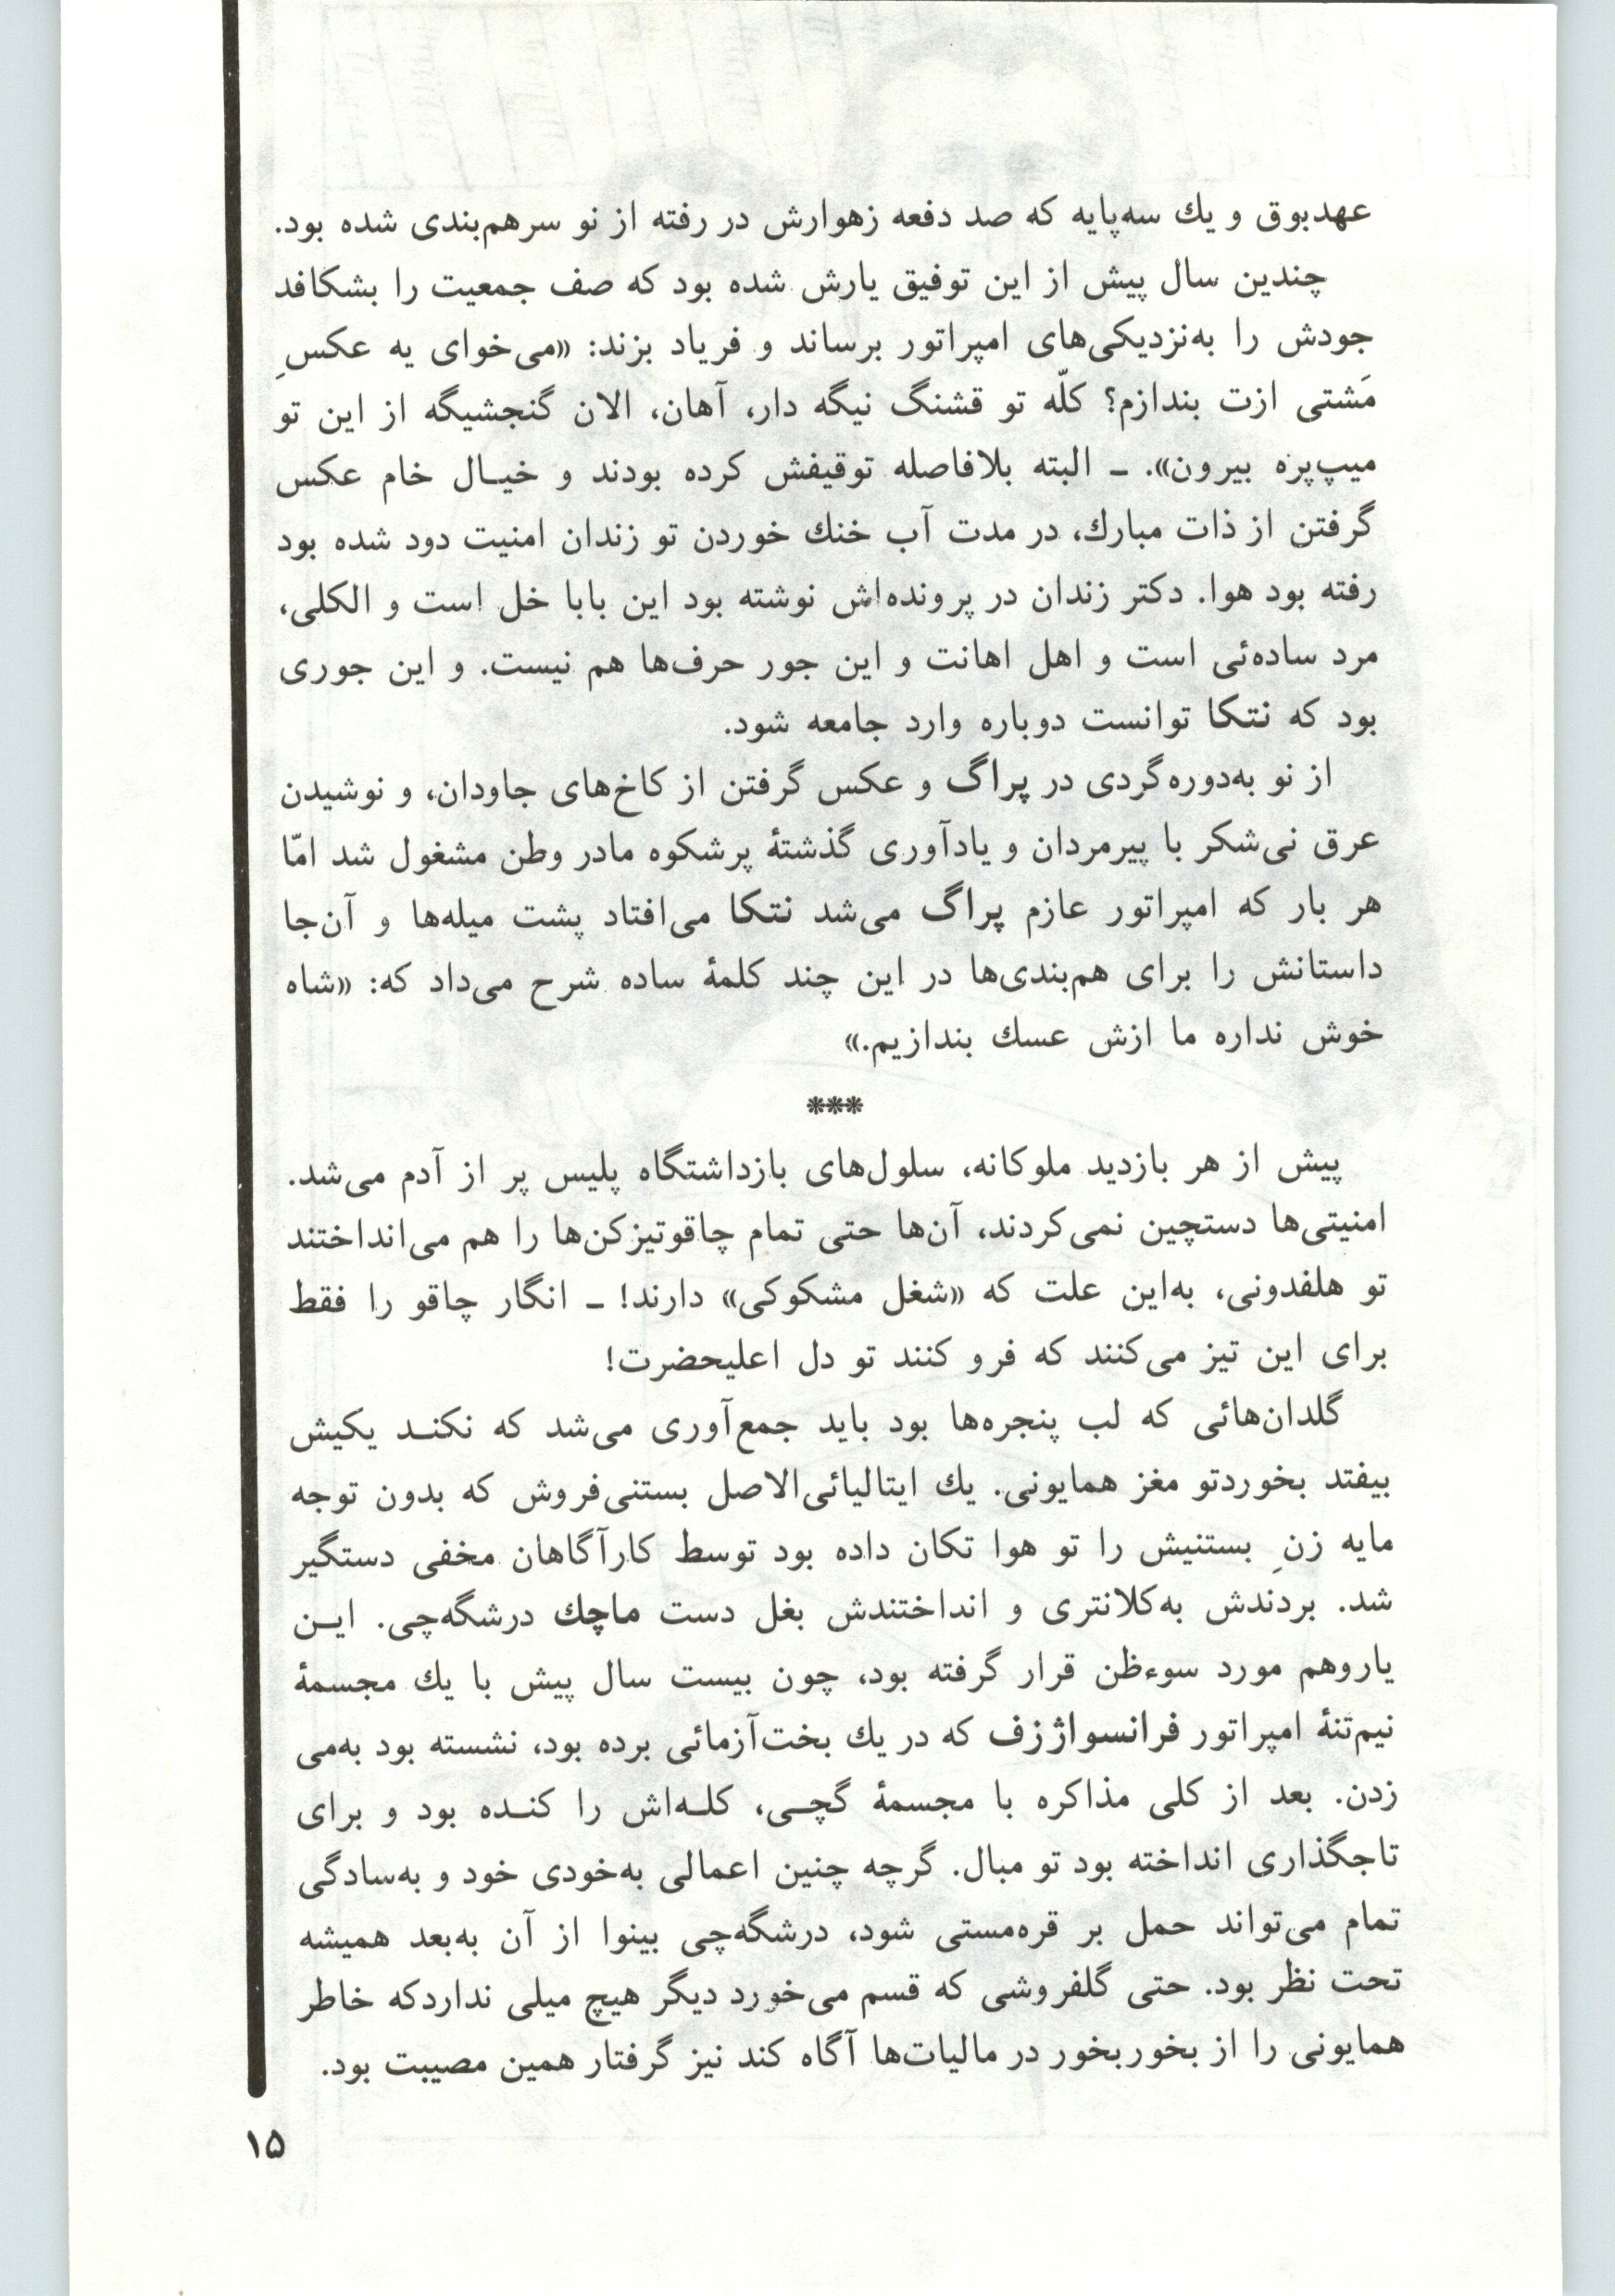 عهدبوق و یك سه‌پایه که صد دفعه زهوارش در رفته از نو سرهم‌بندی شده بود.
چندین سال پیش از این توفیق یارش شده بود که صف جمعیت را بشکافد
جودش را به‌نزدیکی‌های امپراتور برساند و فریاد بزند: «می‌خوای یه عکسِ
مَشتی ازت بندازم؟ کلّه تو قشنگ نیگه دار، آهان، الان گنجشیگه از این تو
میپ‌پره بیرون». ـ البته بلافاصله توقیفش کرده بودند و خیـال خام عکس
گرفتن از ذات مبارك، در مدت آب خنك خوردن تو زندان امنیت دود شده بود
رفته بود هوا. دکتر زندان در پرونده‌اش نوشته بود این بابا خل است و الکلی،
مرد ساده‌ئی است و اهل اهانت و این جور حرف‌ها هم نیست. و این جوری
بود که نتکا توانست دوباره وارد جامعه شود.
از نو به‌دوره‌گردی در پراگ و عکس گرفتن از کاخ‌های جاودان، و نوشیدن
عرق نی‌شکر با پیرمردان و یادآوری گذشتهٔ پرشکوه مادر وطن مشغول شد امّا
هر بار که امپراتور عازم پراگ می‌شد نتکا می‌افتاد پشت میله‌ها و آن‌جا
داستانش را برای هم‌بندی‌ها در این چند کلمهٔ ساده شرح می‌داد که: «شاه
خوش نداره ما ازش عسك بندازیم.»
***
پیش از هر بازدید ملوکانه، سلول‌های بازداشتگاه پلیس پر از آدم می‌شد.
امنیتی‌ها دستچین نمی‌کردند، آن‌ها حتی تمام چاقوتیزکن‌ها را هم می‌انداختند
تو هلفدونی، به‌این علت که «شغل مشکوکی» دارند! ـ انگار چاقو را فقط
برای این تیز می‌کنند که فرو کنند تو دل اعلیحضرت!
گلدان‌هائی که لب پنجره‌ها بود باید جمع‌آوری می‌شد که نکنـد یکیش
بیفتد بخوردتو مغز همایونی. یك ایتالیائی‌الاصل بستنی‌فروش که بدون توجه
مایه زنِ بستنیش را تو هوا تکان داده بود توسط کارآگاهان مخفی دستگیر
شد. بردندش به‌کلانتری و انداختندش بغل دست ماچك درشگه‌چی. ایـن
یاروهم مورد سوءظن قرار گرفته بود، چون بیست سال پیش با یك مجسمهٔ
نیم‌تنهٔ امپراتور فرانسواژزف که در یك بخت‌آزمائی برده بود، نشسته بود به‌می
زدن. بعد از کلی مذاکره با مجسمهٔ گچـی، کلـه‌اش را کنـده بود و برای
تاجگذاری انداخته بود تو مبال. گرچه چنین اعمالی به‌خودی خود و به‌سادگی
تمام می‌تواند حمل بر قره‌مستی شود، درشگه‌چی بینوا از آن به‌بعد همیشه
تحت نظر بود. حتی گلفروشی که قسم می‌خورد دیگر هیچ میلی نداردکه خاطر
همایونی را از بخوربخور در مالیات‌ها آگاه کند نیز گرفتار همین مصیبت بود.
۱۵